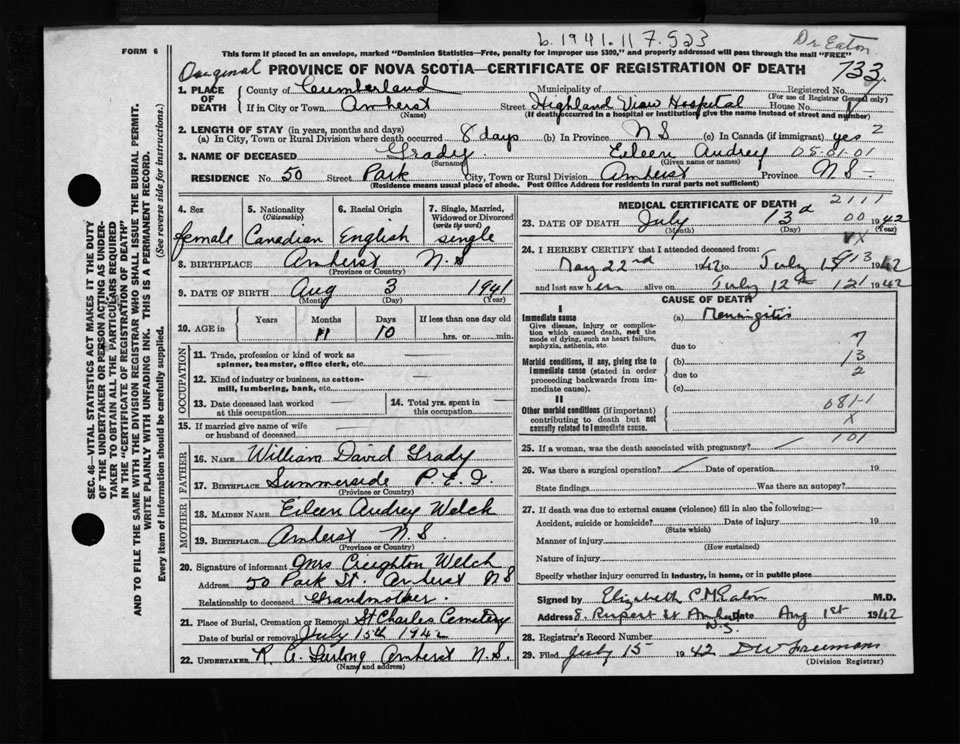 b. 1941.11 7.923
Dr Eaton
FORM 6
This form if placed in an envelope, marked "Dominion Statistics—Free, penalty for improper use $300," and properly addressed will pass through the mail "FREE"
Original PROVINCE OF NOVA SCOTIA—CERTIFICATE OF REGISTRATION OF DEATH 733
1. PLACE OF DEATH County of Cumberland Municipality of Registered No.
(For use of Registrar General only)
If in City or Town Amherst Street Highland View Hospital House No.
(Name) (If death occurred in a hospital or institution, give the name instead of street and number)
2. LENGTH OF STAY (in years, months and days)
(a) In City, Town or Rural Division where death occurred 8 days (b) In Province N S (c) In Canada (if immigrant) yes 2
3. NAME OF DECEASED Grady Eileen Audrey 05-01-01
(Surname) (Given name or names)
RESIDENCE No. 50 Street Park City, Town or Rural Division Amherst Province N S -
(Residence means usual place of abode. Post Office Address for residents in rural parts not sufficient)
4. Sex female
5. Nationality (Citizenship) Canadian
6. Racial Origin English
7. Single, Married, Widowed or Divorced (write the word) single
8. BIRTHPLACE Amherst N S
(Province or Country)
9. DATE OF BIRTH Aug 3 1941
(Month) (Day) (Year)
10. AGE in Years Months 11 Days 10 If less than one day old hrs. or min.
OCCUPATION
11. Trade, profession or kind of work as spinner, teamster, office clerk, etc.
12. Kind of industry or business, as cotton-mill, lumbering, bank, etc.
13. Date deceased last worked at this occupation
14. Total yrs. spent in this occupation
15. If married give name of wife or husband of deceased
FATHER
16. NAME William David Grady
17. BIRTHPLACE Summerside P.E.I.
(Province or Country)
MOTHER
18. MAIDEN NAME Eileen Audrey Welch
19. BIRTHPLACE Amherst N.S.
(Province or Country)
20. Signature of informant Mrs Creighton Welch
Address 50 Park St. Amherst N S
Relationship to deceased Grandmother.
21. Place of Burial, Cremation or Removal St Charles Cemetery
Date of burial or removal July 15th 1942
22. UNDERTAKER Amherst N.S.
(Name and address)
MEDICAL CERTIFICATE OF DEATH 2111
23. DATE OF DEATH July 13 1942
(Month) (Day) (Year)
00
24. I HEREBY CERTIFY that I attended deceased from:
May 22nd 1942 to July 1942
and last saw her alive on July 12th 121 1942
CAUSE OF DEATH
Immediate cause
Give disease, injury or complication which caused death, not the mode of dying, such as heart failure, asphyxia, asthenia, etc.
(a) Meningitis
due to 7
Morbid conditions, if any, giving rise to immediate cause (stated in order proceeding backwards from immediate cause).
(b) 13
due to 2
(c)
II
Other morbid conditions (if important) contributing to death but not causally related to immediate cause.
081-1
X
101
25. If a woman, was the death associated with pregnancy?
26. Was there a surgical operation? Date of operation 19
State findings Was there an autopsy?
27. If death was due to external causes (violence) fill in also the following:—
Accident, suicide or homicide? Date of injury 19
(State which)
Manner of injury
(How sustained)
Nature of injury
Specify whether injury occurred in industry, in home, or in public place
Signed by Elizabeth C McEaton M.D.
Address E. Rupert St Amherst N.S. Date Aug 1st 1942
28. Registrar's Record Number
29. Filed July 15 1942 DW Freeman
(Division Registrar)
SEC. 46—VITAL STATISTICS ACT MAKES IT THE DUTY
OF THE UNDERTAKER OR PERSON ACTING AS UNDER-
TAKER TO OBTAIN ALL THE PARTICULARS REQUIRED
IN THE "CERTIFICATE OF REGISTRATION OF DEATH"
AND TO FILE THE SAME WITH THE DIVISION REGISTRAR WHO SHALL ISSUE THE BURIAL PERMIT.
WRITE PLAINLY WITH UNFADING INK. THIS IS A PERMANENT RECORD.
Every item of information should be carefully supplied. (See reverse side for instructions.)